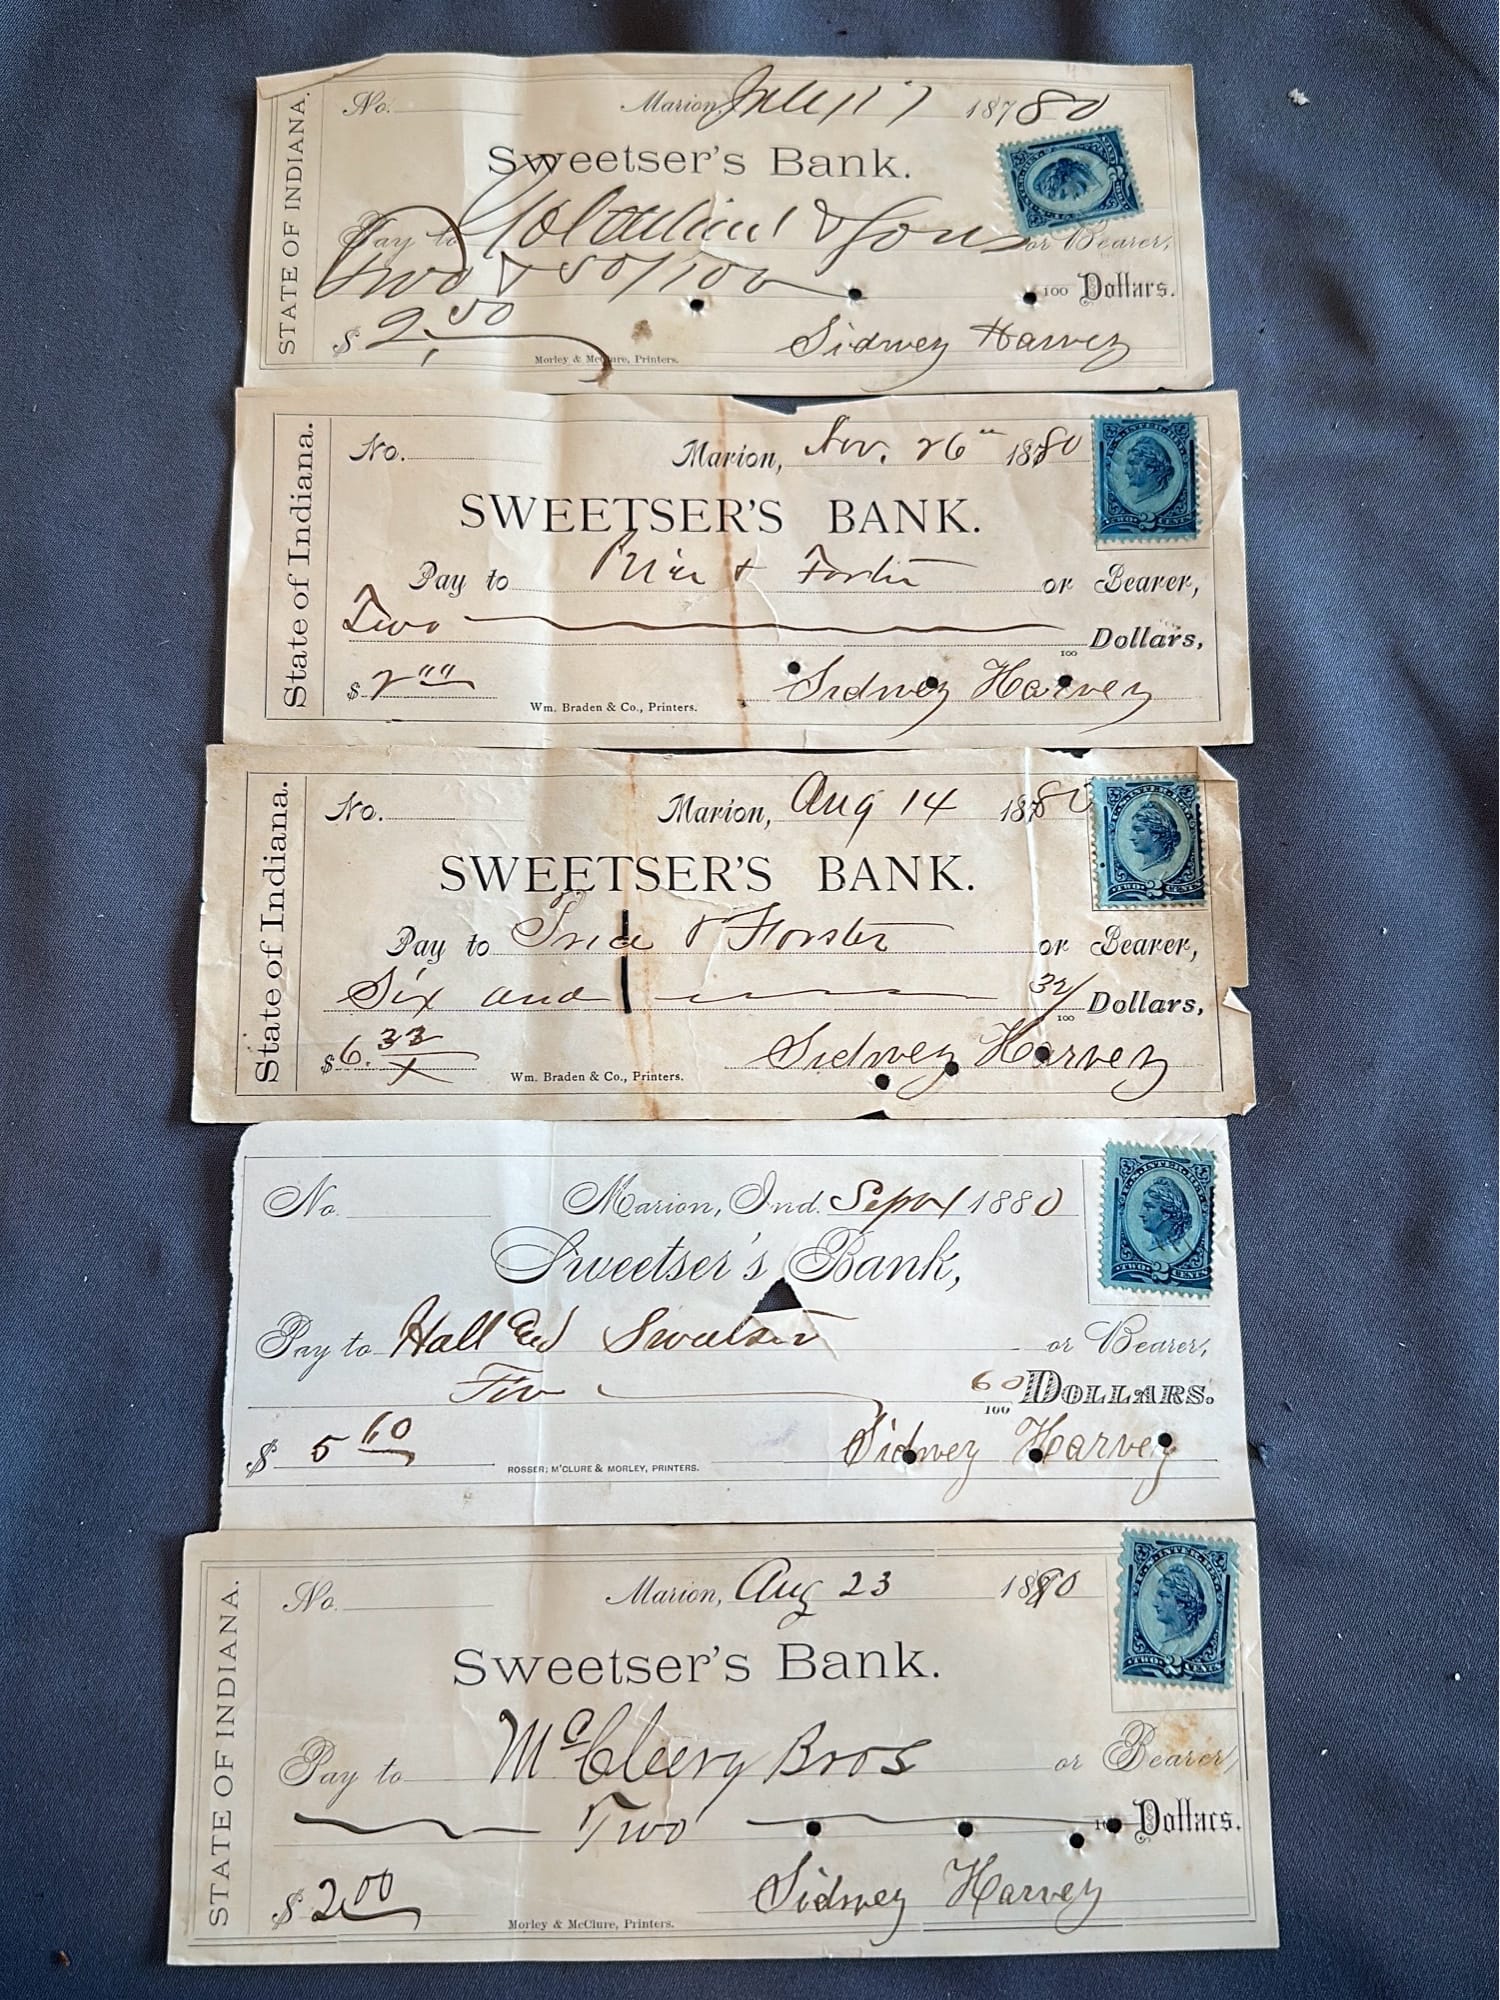 STATE OF INDIANA.
No. Marion, July 17 18780
Sweetser's Bank.
Pay to & Sons or Bearer,
Two & 50/100 100 Dollars.
$ 2.50 Sidney Harvey
Morley & McClure, Printers.
State of Indiana.
No. Marion, Nov. 26" 1880
SWEETSER'S BANK.
Pay to Price & Forster or Bearer,
Two 100 Dollars,
$ 2 00 Sidney Harvey
Wm. Braden & Co., Printers.
TWO 2 CENTS
State of Indiana.
No. Marion, Aug 14 1880
SWEETSER'S BANK.
Pay to Price & Forster or Bearer,
Six and 32/100 Dollars,
$ 6.32 Sidney Harvey
Wm. Braden & Co., Printers.
TWO 2 CENTS
No. Marion, Ind. Sept 1 1880
Sweetser's Bank,
Pay to Hall and Sweetser or Bearer,
Five 60/100 DOLLARS.
$ 5 60 Sidney Harvey
ROSSER, M'CLURE & MORLEY, PRINTERS.
TWO 2 CENTS
STATE OF INDIANA.
No. Marion, Aug 23 1880
Sweetser's Bank.
Pay to McCleery Bros or Bearer,
Two 100 Dollars.
$ 2.00 Sidney Harvey
Morley & McClure, Printers.
TWO 2 CENTS